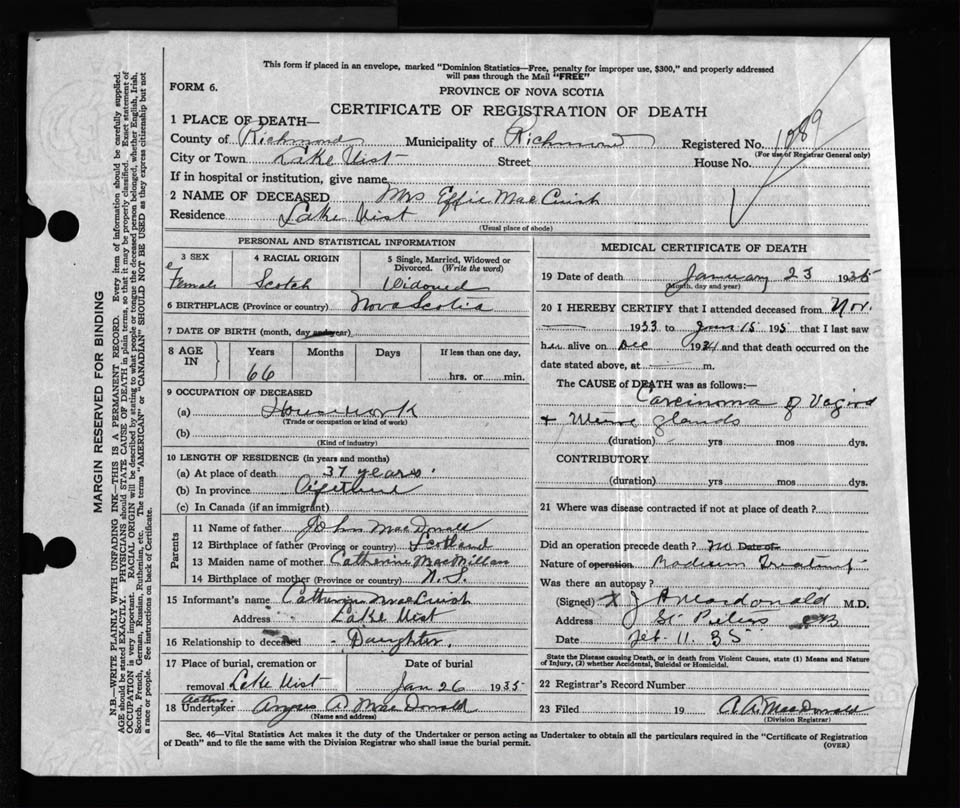 This form if placed in an envelope, marked "Dominion Statistics—Free, penalty for improper use, $300," and properly addressed
will pass through the Mail "FREE"
FORM 6.
PROVINCE OF NOVA SCOTIA
CERTIFICATE OF REGISTRATION OF DEATH
1 PLACE OF DEATH—
County of Richmond Municipality of Richmond Registered No. 1089
(For use of Registrar General only)
City or Town Lake Uist Street House No.
If in hospital or institution, give name
2 NAME OF DECEASED Mrs Effie MacCuish
Residence Lake Uist
(Usual place of abode)
PERSONAL AND STATISTICAL INFORMATION
3 SEX 4 RACIAL ORIGIN 5 Single, Married, Widowed or
Divorced. (Write the word)
Female Scotch Widowed
6 BIRTHPLACE (Province or country) Nova Scotia
7 DATE OF BIRTH (month, day and year)
8 AGE IN Years Months Days If less than one day,
66 hrs. or min.
9 OCCUPATION OF DECEASED
(a) Housework
(Trade or occupation or kind of work)
(b)
(Kind of industry)
10 LENGTH OF RESIDENCE (in years and months)
(a) At place of death 37 years
(b) In province
(c) In Canada (if an immigrant)
Parents
11 Name of father John MacDonald
12 Birthplace of father (Province or country) Scotland
13 Maiden name of mother Catherine MacMillan
14 Birthplace of mother (Province or country) N.S.
15 Informant's name Catherine MacCuish
Address Lake Uist
16 Relationship to deceased Daughter
17 Place of burial, cremation or Date of burial
removal Lake Uist Jan 26 1935
Acting
18 Undertaker Angus A MacDonald
(Name and address)
MEDICAL CERTIFICATE OF DEATH
19 Date of death January 23 1935
(Month, day and year)
20 I HEREBY CERTIFY that I attended deceased from Nov.
1933 to Jan 15 195 that I last saw
her alive on Dec 1934 and that death occurred on the
date stated above, at m.
The CAUSE of DEATH was as follows:—
Carcinoma of
+ glands
(duration) yrs mos dys.
CONTRIBUTORY
(duration) yrs. mos. dys.
21 Where was disease contracted if not at place of death?
Did an operation precede death? no Date of
Nature of operation Radium Treatment
Was there an autopsy?
(Signed) X J A Macdonald M.D.
Address St Peters CB
Date Feb. 11. 35
State the Disease causing Death, or in death from Violent Causes, state (1) Means and Nature
of Injury, (2) whether Accidental, Suicidal or Homicidal.
22 Registrar's Record Number
23 Filed 19 A. A. MacDonald
(Division Registrar)
Sec. 46—Vital Statistics Act makes it the duty of the Undertaker or person acting as Undertaker to obtain all the particulars required in the "Certificate of Registration
of Death" and to file the same with the Division Registrar who shall issue the burial permit.
(OVER)
MARGIN RESERVED FOR BINDING
N.B.—WRITE PLAINLY WITH UNFADING INK—THIS IS A PERMANENT RECORD. Every item of information should be carefully supplied.
AGE should be stated EXACTLY. PHYSICIANS should STATE CAUSE OF DEATH in plain terms, so that it may be properly classified. Exact statement of
OCCUPATION is very important. RACIAL ORIGIN will be described by stating to what people or tongue the deceased person belonged, whether English, Irish,
Scotch, French, German, Russian, Ruthenian, etc. The terms "AMERICAN" or "CANADIAN" SHOULD NOT BE USED as they express citizenship but not
a race or people. See instructions on back of Certificate.